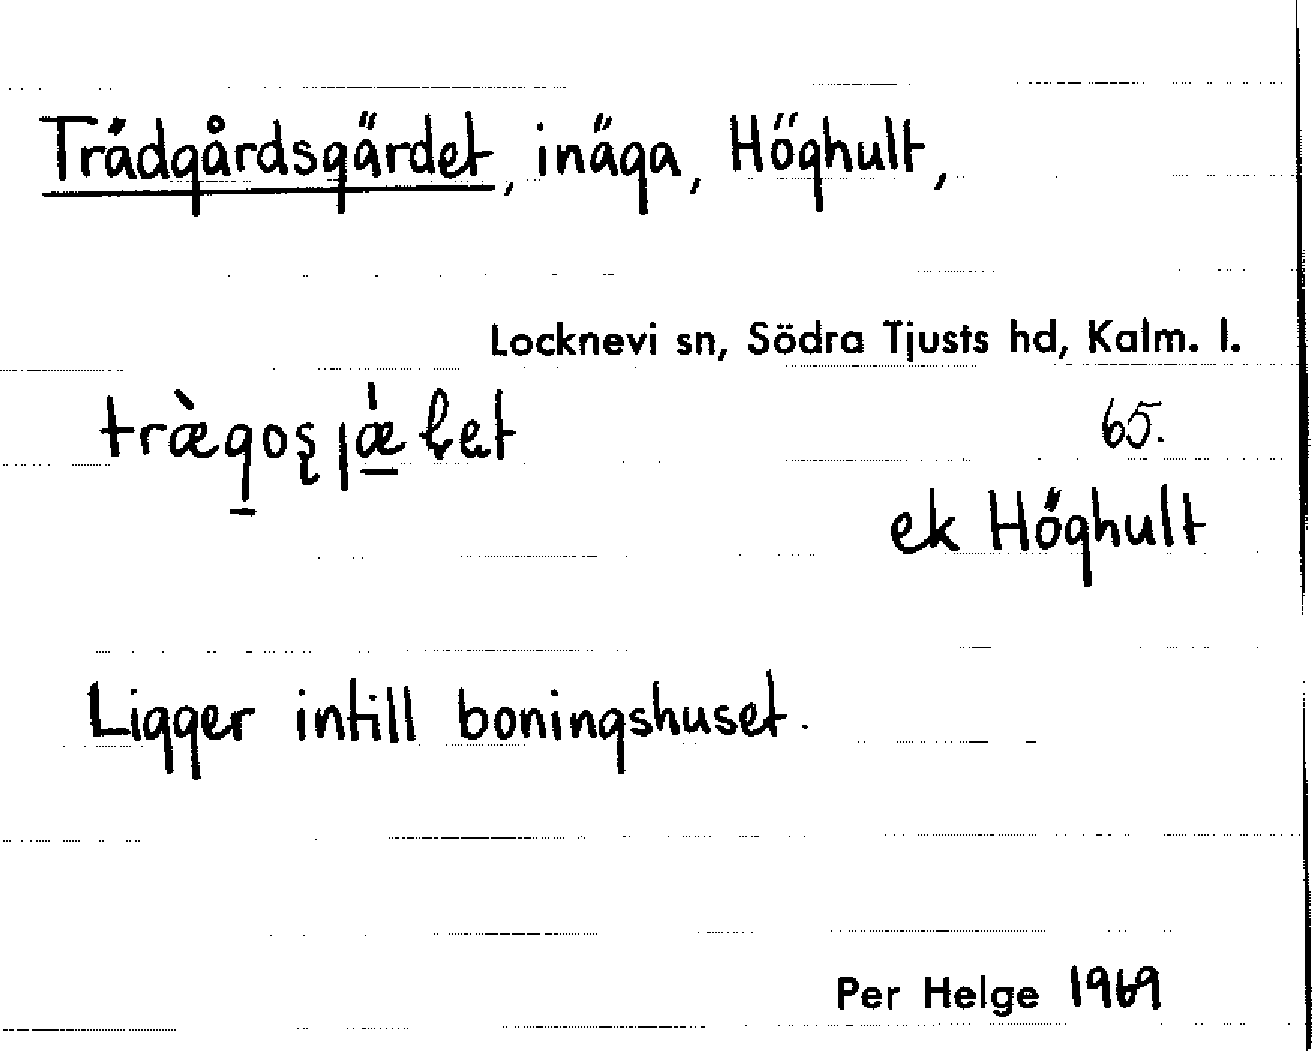 Trädgårdsgärdet, inäga, Höghult,
Locknevi sn, Södra Tjusts hd, Kalm. l.
65.
ek Höghult
Ligger intill boningshuset.
Per Helge 1969